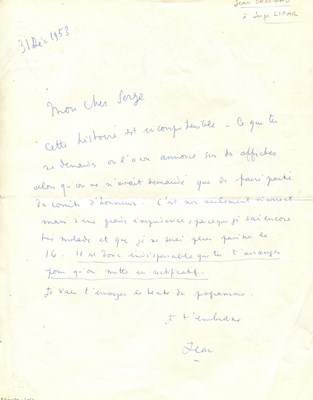 Jean
à Serge LIFAR
31 Déc 1953
Mon cher Serge
Cette histoire est incompréhensible – Ce que tu
me demandes on l'a annoncé sur des affiches
alors qu'on ne m'avait demandé que de faire partie
du comité d'honneur. C'est non seulement
mais d'une grave parce que je suis encore
très malade et que je ne serai plus le
16. Il est donc indispensable que tu t'arranges
pour qu'on mette un rectificatif.
Je vais t'envoyer le texte du programme.
Je t'embrasse
Jean